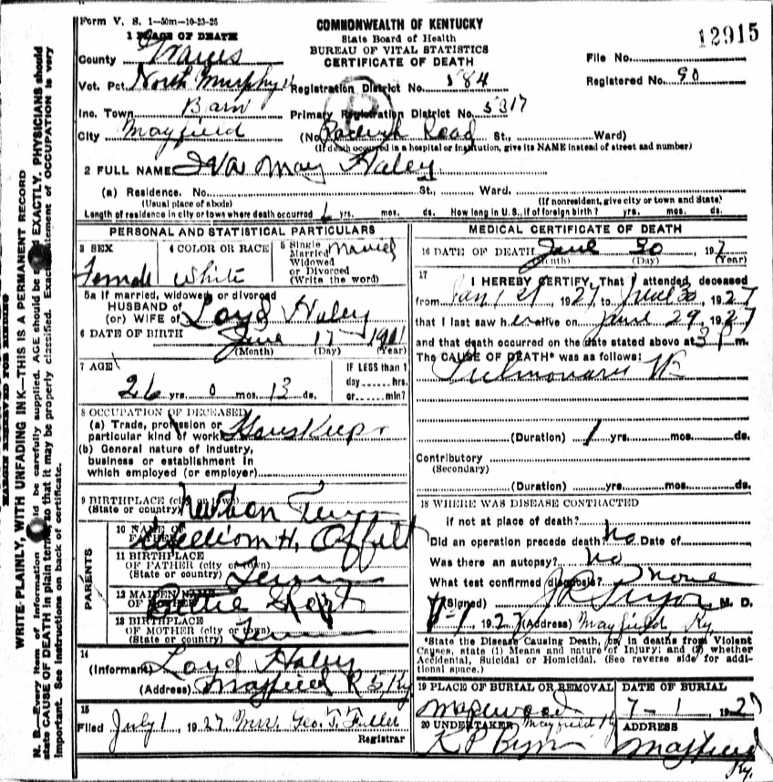 Form V. S. 1—50m—10-23-25
COMMONWEALTH OF KENTUCKY
State Board of Health
BUREAU OF VITAL STATISTICS
CERTIFICATE OF DEATH
12915
1 PLACE OF DEATH
County Graves
File No.
Vot. Pct. North Murphy
Registration District No. 584
Registered No. 90
Inc. Town Barn
Primary Registration District No. 5317
City Mayfield
(No. Road St., Ward)
(If death occurred in a hospital or institution, give its NAME instead of street and number)
2 FULL NAME Iva May Haley
(a) Residence. No. St., Ward.
(Usual place of abode) (If nonresident, give city or town and State)
Length of residence in city or town where death occurred yrs. mos. ds. How long in U.S., if of foreign birth? yrs. mos. ds.
PERSONAL AND STATISTICAL PARTICULARS
3 SEX Female
4 COLOR OR RACE White
5 Single Married Widowed or Divorced (Write the word) Married
5a If married, widowed or divorced
HUSBAND OF
(or) WIFE OF Loyd Haley
6 DATE OF BIRTH June 17 1901
(Month) (Day) (Year)
7 AGE 26 yrs. 0 mos. 13 ds.
IF LESS than 1 day hrs. or min?
8 OCCUPATION OF DECEASED
(a) Trade, profession or particular kind of work House Keeper
(b) General nature of industry, business or establishment in which employed (or employer)
9 BIRTHPLACE (city or town)
(State or country) Tenn
10 NAME OF FATHER William H. Offutt
11 BIRTHPLACE OF FATHER (city or town)
(State or country) Tenn
12 MAIDEN NAME OF MOTHER
13 BIRTHPLACE OF MOTHER (city or town)
(State or country) Tenn
PARENTS
14 (Informant) Loyd Haley
(Address) Mayfield R Ky
15 Filed July 1, 1927 Mrs. Geo. T. Fuller
Registrar
MEDICAL CERTIFICATE OF DEATH
16 DATE OF DEATH June 30 1927
(Month) (Day) (Year)
17 I HEREBY CERTIFY, That I attended, deceased
from Jan 21, 1927, to June 30, 1927
that I last saw her alive on June 29, 1927
and that death occurred on the date stated above at m.
The CAUSE OF DEATH* was as follows:
Pulmonary TB
(Duration) 1 yrs. mos. ds.
Contributory
(Secondary)
(Duration) yrs. mos. ds.
18 WHERE WAS DISEASE CONTRACTED
if not at place of death?
Did an operation precede death No Date of
Was there an autopsy? No
What test confirmed diagnosis? None
(Signed) J R Pryor M. D.
7-1, 1927 (Address) Mayfield Ky
*State the Disease Causing Death, or, in deaths from Violent Causes, state (1) Means and nature of Injury; and (2) whether Accidental, Suicidal or Homicidal. (See reverse side for additional space.)
19 PLACE OF BURIAL OR REMOVAL Maplewood Mayfield Ky
DATE OF BURIAL 7-1 1927
20 UNDERTAKER
ADDRESS Mayfield Ky.
MARGIN RESERVED FOR BINDING
WRITE PLAINLY, WITH UNFADING INK—THIS IS A PERMANENT RECORD
N. B.—Every item of information should be carefully supplied. AGE should be stated EXACTLY. PHYSICIANS should state CAUSE OF DEATH in plain terms, so that it may be properly classified. Exact statement of OCCUPATION is very important. See instructions on back of certificate.